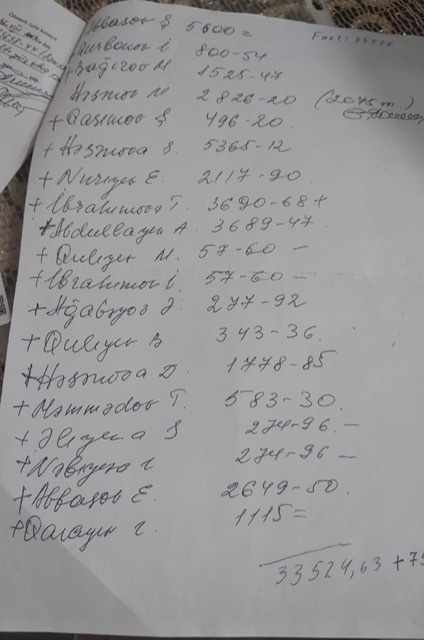 Abbasov Ş 5.600=
Qurbanov İ 800-54
Bağırov M. 1525-47
Həşimov M 2826-20 (2075m)
+ Qasımov Ş 496-20.
+ Həşimova S. 5365-12
+ Nuriyev E. 2117-90.
+ İbrahimova T. 3690-68+
+ Abdullayev A 3689-47
+ Quliyev M. 57-60 -
+ İbrahimov İ. 57-60 -
+ Ağabəyov Ə 277-92
+ Quliyev B 343-36.
+ Həşimova D. 1778-85
+ Məmmədov T. 583-30.
+ Əliyeva Ş 274-96. -
+ Nəbiyeva İ 274-96 -
+ Abbasov E. 2649-50.
+ Qarayev İ. 1115=
33524,63 +